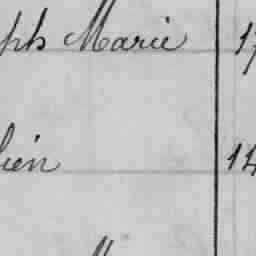 ph Marie 17
lien 14